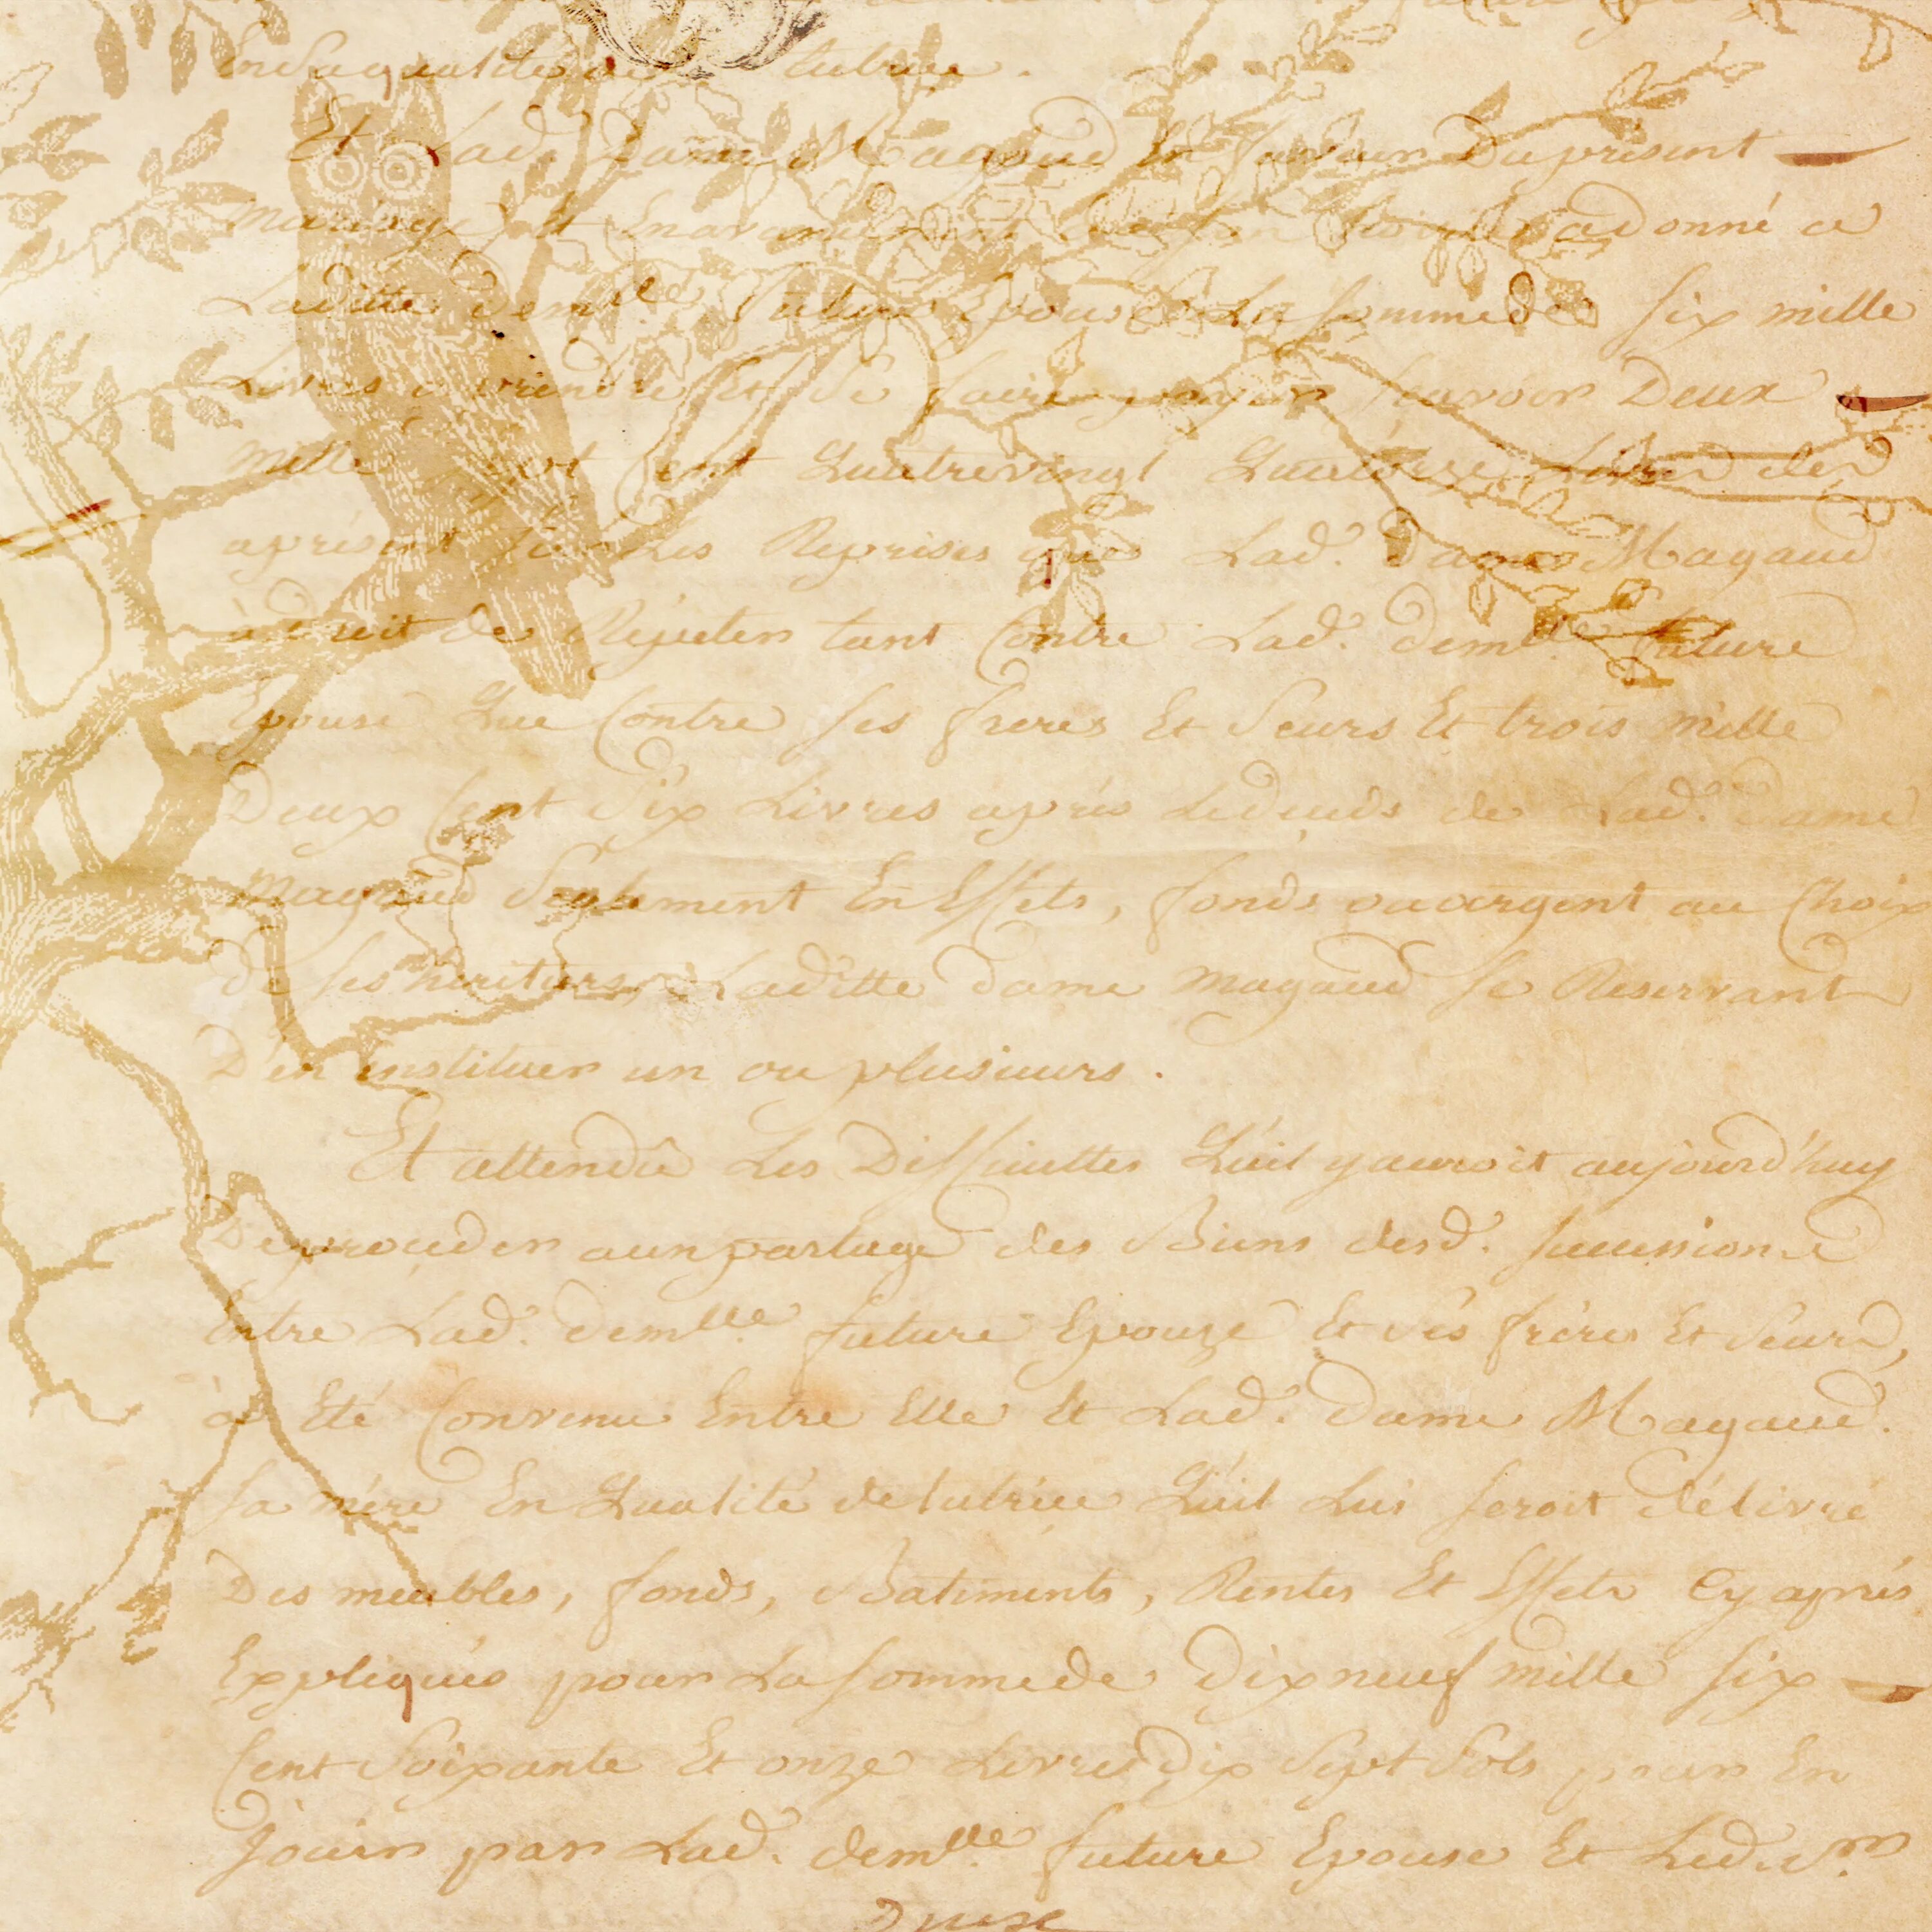 En sa qualité de tutrice.
Et Lad. Dame Magaud En faveur Du présent
mariage Et En avancement a donné a
Laditte dem.lle future Epouse La somme de six mille
Livres a prendre Et se faire payer sçavoir Deux
mille sept Cent Quatrevingt Quatorze Livres des
aprésent sur Les Reprises que Lad. Dame Magaud
à droit de Répéter tant Contre Lad. dem.lle future
Epouse Que Contre ses freres Et Seurs Et trois mille
Deux Cent Six Livres après Le déceds de Lad. dame
Magaud Seulement En Effets, fonds ou argent au Choix
de ses héritiers, Laditte dame magaud se Reservant
D'en instituer un ou plusieurs.
Et attendû Les Difficultes Qu'il y auroit aujourd'huy
De proceder a un partage des Biens desd. successions
Entre Lad. dem.lle future Epouze Et Ses fréres Et Seurs,
à Eté Convenu Entre Elle Et Lad. dame Magaud.
sa mère En Qualité de tutrice Qu'il Lui seroit délivré
Des meubles, fonds, Batiments, Rentes Et Effets Cy après
Expliqués pour La somme de Dix neuf mille six
Cent Soixante Et onze Livres Dix Sept Sols pour En
Jouir par Lad. dem.lle future Epouse Et Led. S.r